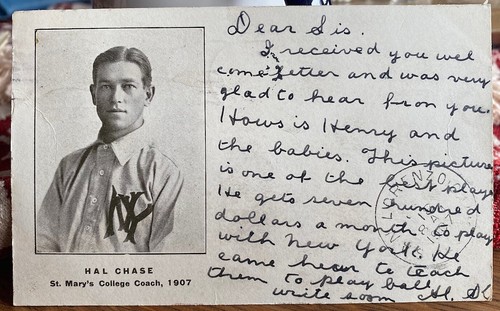 Dear Sis.
I received you wel
come letter and was very
glad to hear from you.
Hows is Henry and
the babies. This picture
is one of the best players
He gets seven hundred
dollars a month to play
with New York. He
came hear to teach
them to play ball
write soon
NY
HAL CHASE
St. Mary's College Coach, 1907